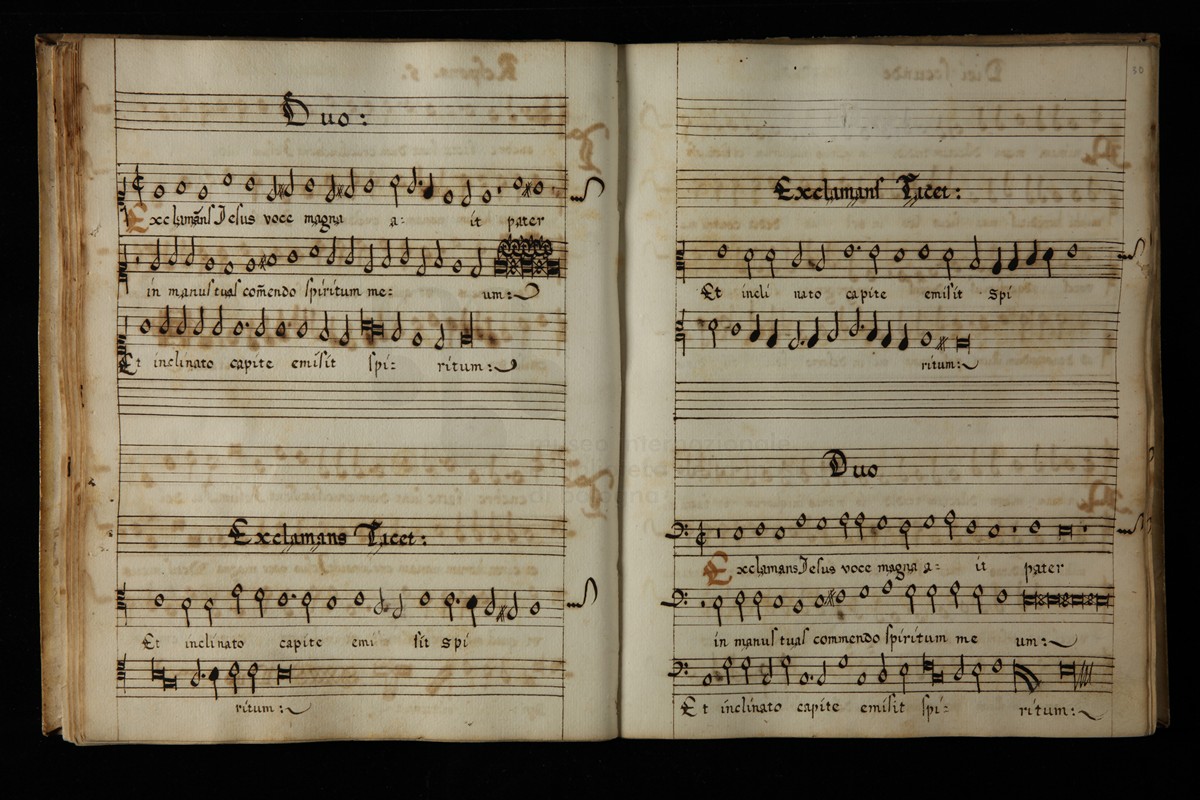 Duo:
Exclamans Jesus voce magna a: it pater
in manus tuas comẽndo spiritum me: um:
Et inclinato capite emisit spi: ritum:
Exclamans Tacet:
Et inclinato capite emi sit spi
ritum:
50
Exclamans Tacet:
Et incli nato capite emisit spi
ritum:
Duo
Exclamans Jesus voce magna a: it pater
in manus tuas commendo spiritum me um:
Et inclinato capite emisit spi: ritum:
museo internazionale